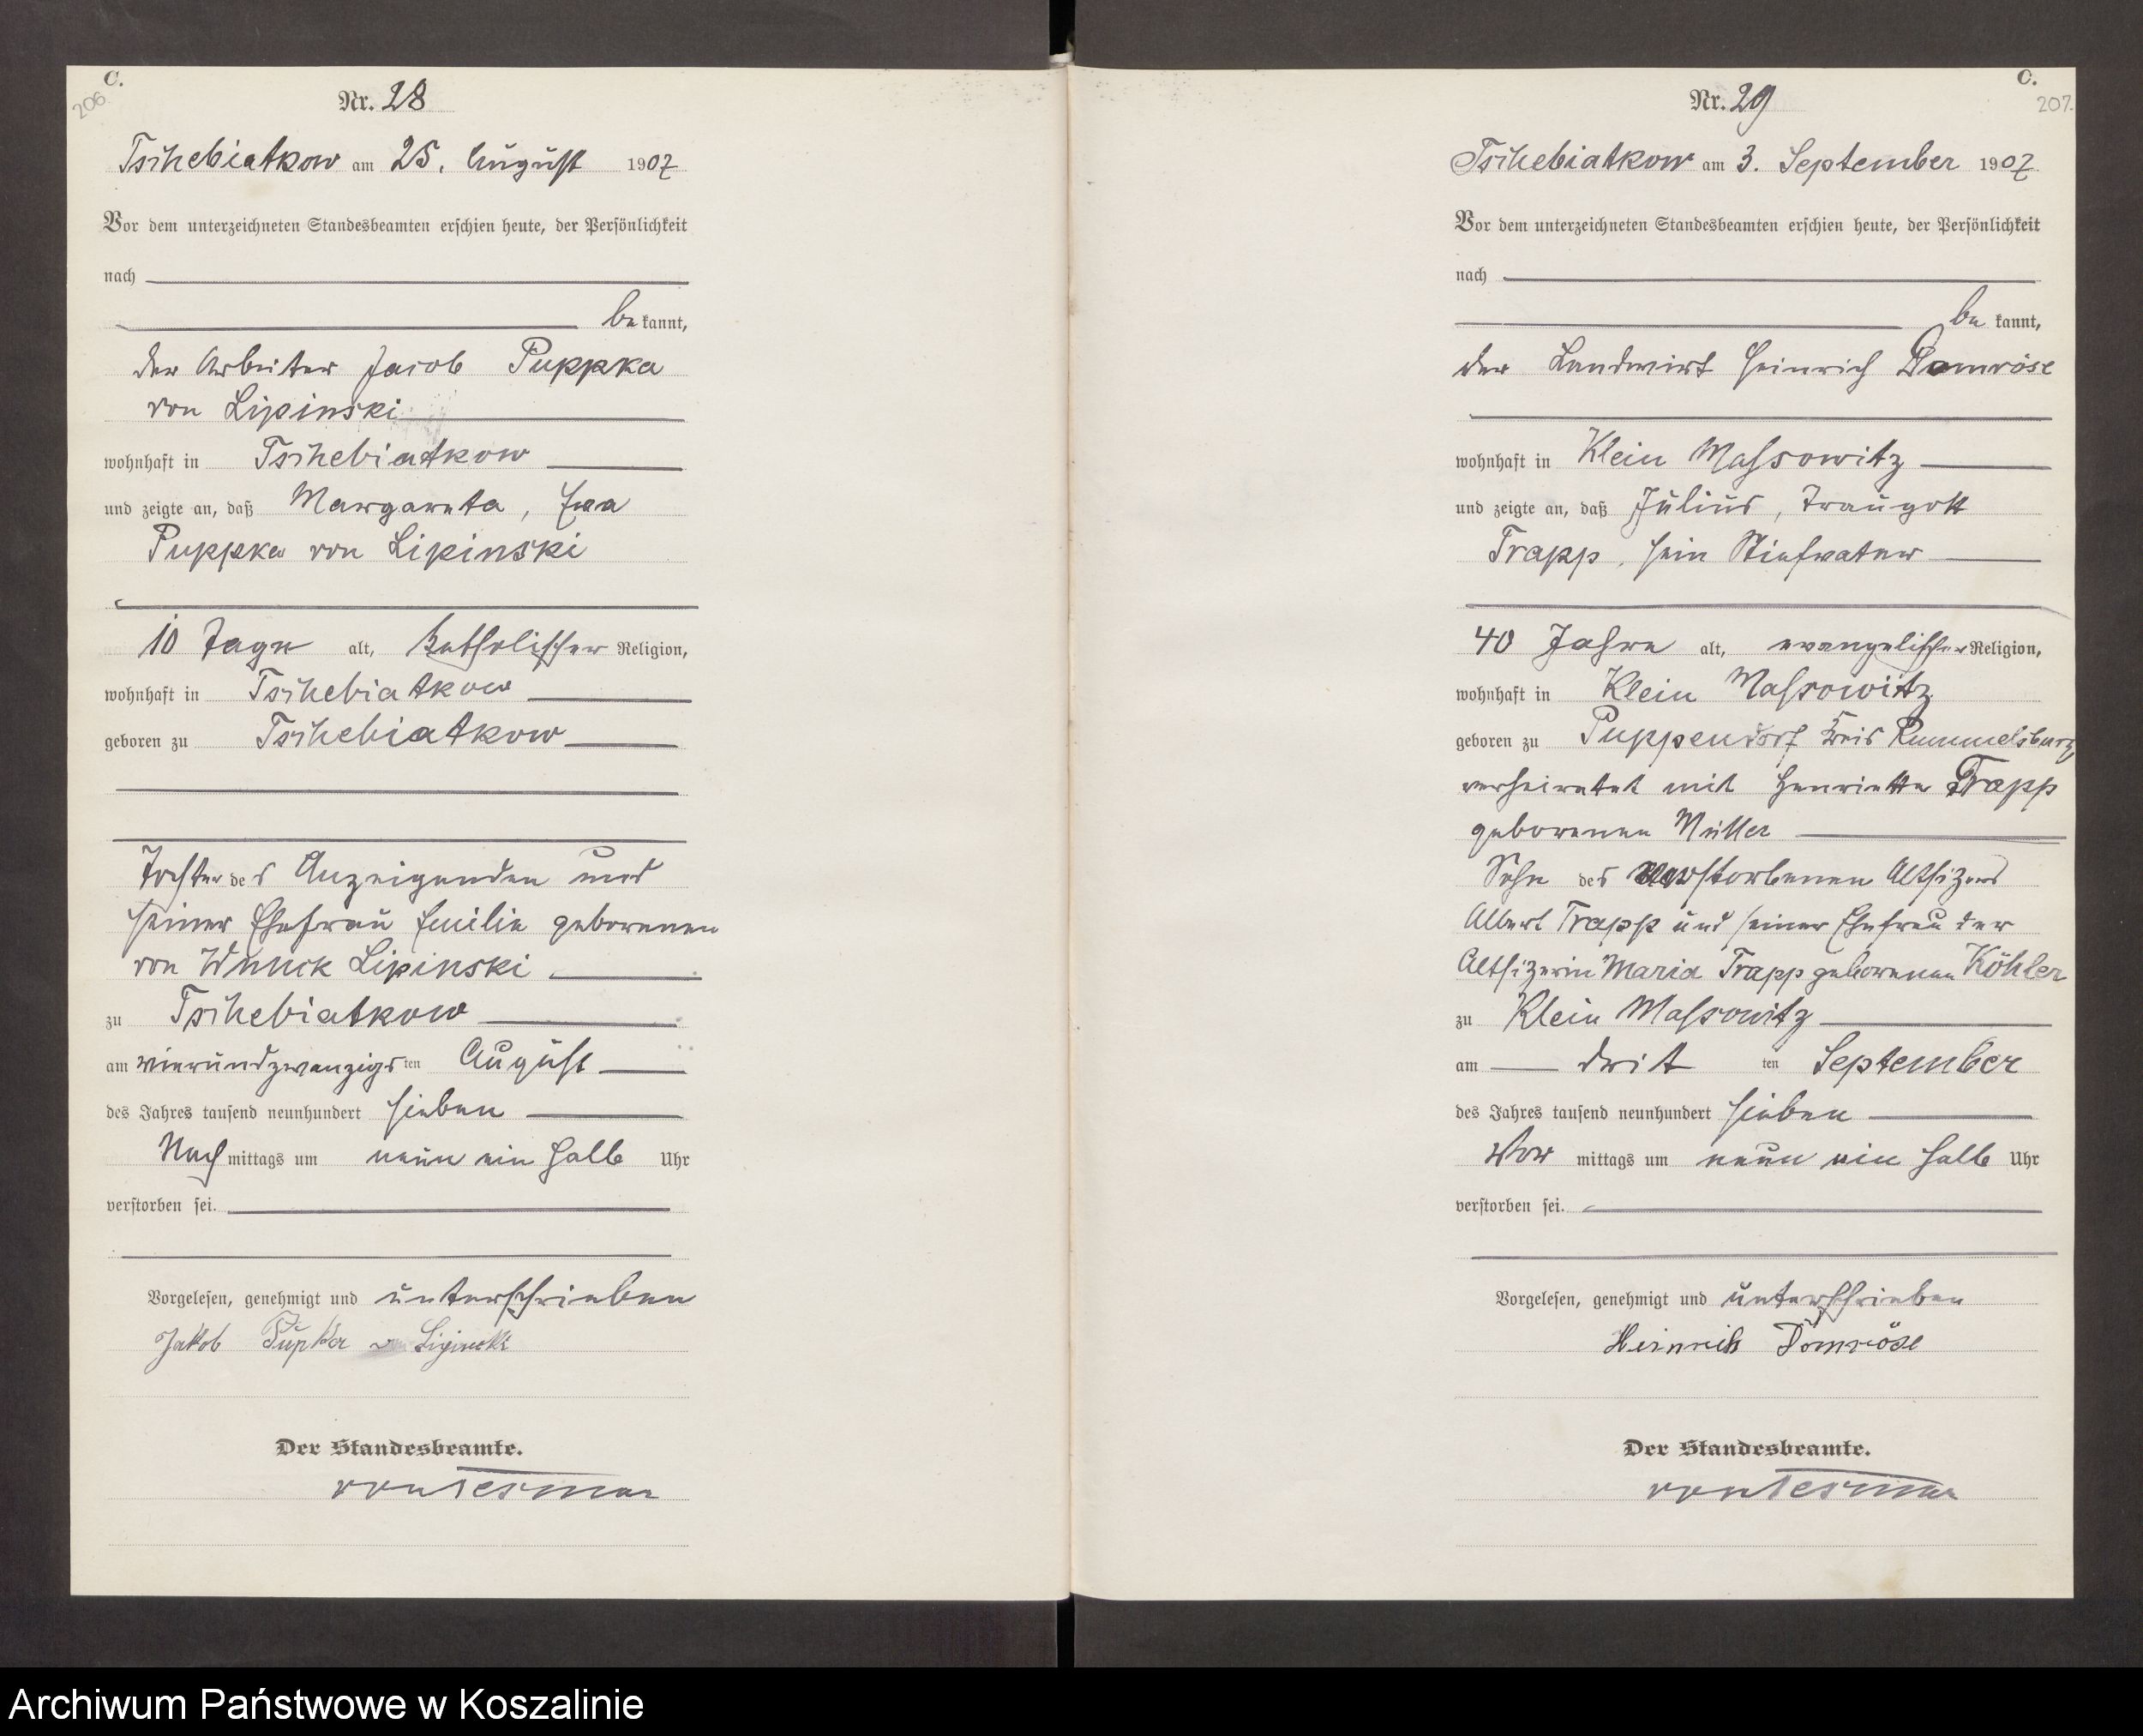 C.
206
Nr. 28
Tschebiatkow am 25. August 1907
Vor dem unterzeichneten Standesbeamten erschien heute, der Persönlichkeit
nach
be kannt,
der Arbeiter Jacob Puppka
von Lipinski
wohnhaft in Tschebiatkow
und zeigte an, daß Margareta, Ewa
Puppka von Lipinski
10 Tage alt, katholischer Religion,
wohnhaft in Tschebiatkow
geboren zu Tschebiatkow
Tochter des Anzeigenden und
seiner Ehefrau Emilie geborenen
von Wnuck Lipinski
zu Tschebiatkow
am vierundzwanzigsten August
des Jahres tausend neunhundert sieben
Nach mittags um neun ein halb Uhr
verstorben sei.
Vorgelesen, genehmigt und unterschrieben
Jakob Pupka von Lipinski
Der Standesbeamte.
von Tesmar
C.
207.
Nr. 29
Tschebiatkow am 3. September 1907
Vor dem unterzeichneten Standesbeamten erschien heute, der Persönlichkeit
nach
be kannt,
der Landwirt Heinrich Domröse
wohnhaft in Klein Massowitz
und zeigte an, daß Julius, Traugott
Trapp, sein Stiefvater
40 Jahre alt, evangelischer Religion,
wohnhaft in Klein Massowitz
geboren zu Puppendorf Kreis Rummelsburg,
verheiratet mit Henriette Trapp
geborenen Müller
Sohn des verstorbenen Altsizers
Albert Trapp und seiner Ehefrau der
Altsizerin Maria Trapp geborenen Köhler
zu Klein Massowitz
am dritten September
des Jahres tausend neunhundert sieben
Vor mittags um neun ein halb Uhr
verstorben sei.
Vorgelesen, genehmigt und unterschrieben
Heinrich Domröse
Der Standesbeamte.
von Tesmar
Archiwum Państwowe w Koszalinie